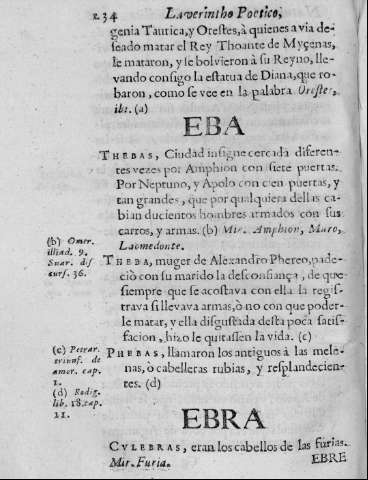 234 Laverintho Poetico,
genia Taurica, y Orestes, à quienes avia de-
seado matar el Rey Thoante de Myçenas,
le mataron, y le bolvieron à su Reyno, lle-
vando consigo la estatua de Diana, que ro-
baron, como se vee en la palabra Orestes,
ibi. (a)
EBA
THEBAS, Ciudad insigne cercada diferen-
tes vezes por Amphion con siete puertas.
Por Neptuno, y Apolo con cien puertas, y
tan grandes, que por qualquiera dellas ca-
bian ducientos hombres armados con sus
carros, y armas. (b) Mir. Amphion, Muro,
Laomedonte.
(b) Omer.
illiad. 9.
Suar. dis
curs. 36.
THEBA, muger de Alexandro Phereo, pade-
ciò con su marido la desconfiança, de que
siempre que se acostava con ella la regis-
trava si llevava armas, ò no con que poder-
le matar, y ella disgustada desta poca satis-
facion, hizo le quitassen la vida. (c)
(c) Petrar.
triunf. de
amor. cap.
1.
PHEBAS, llamaron los antiguos à las mele-
nas, ò cabelleras rubias, y resplandecien-
tes. (d)
(d) Rodig.
lib. 18. cap.
11.
EBRA
CVLEBRAS, eran los cabellos de las furias.
Mir. Furia.
EBRE